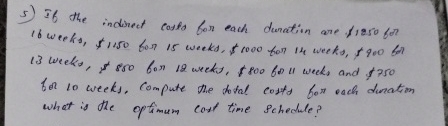 5) If the indirect costs for each duration are $1250 for
16 weeks, $1150 for 15 weeks, $1000 for 14 weeks, $900 for
13 weeks, $850 for 12 weeks, $800 for 11 weeks and $750
for 10 weeks, Compute the total costs for each duration
what is the optimum cost time schedule?